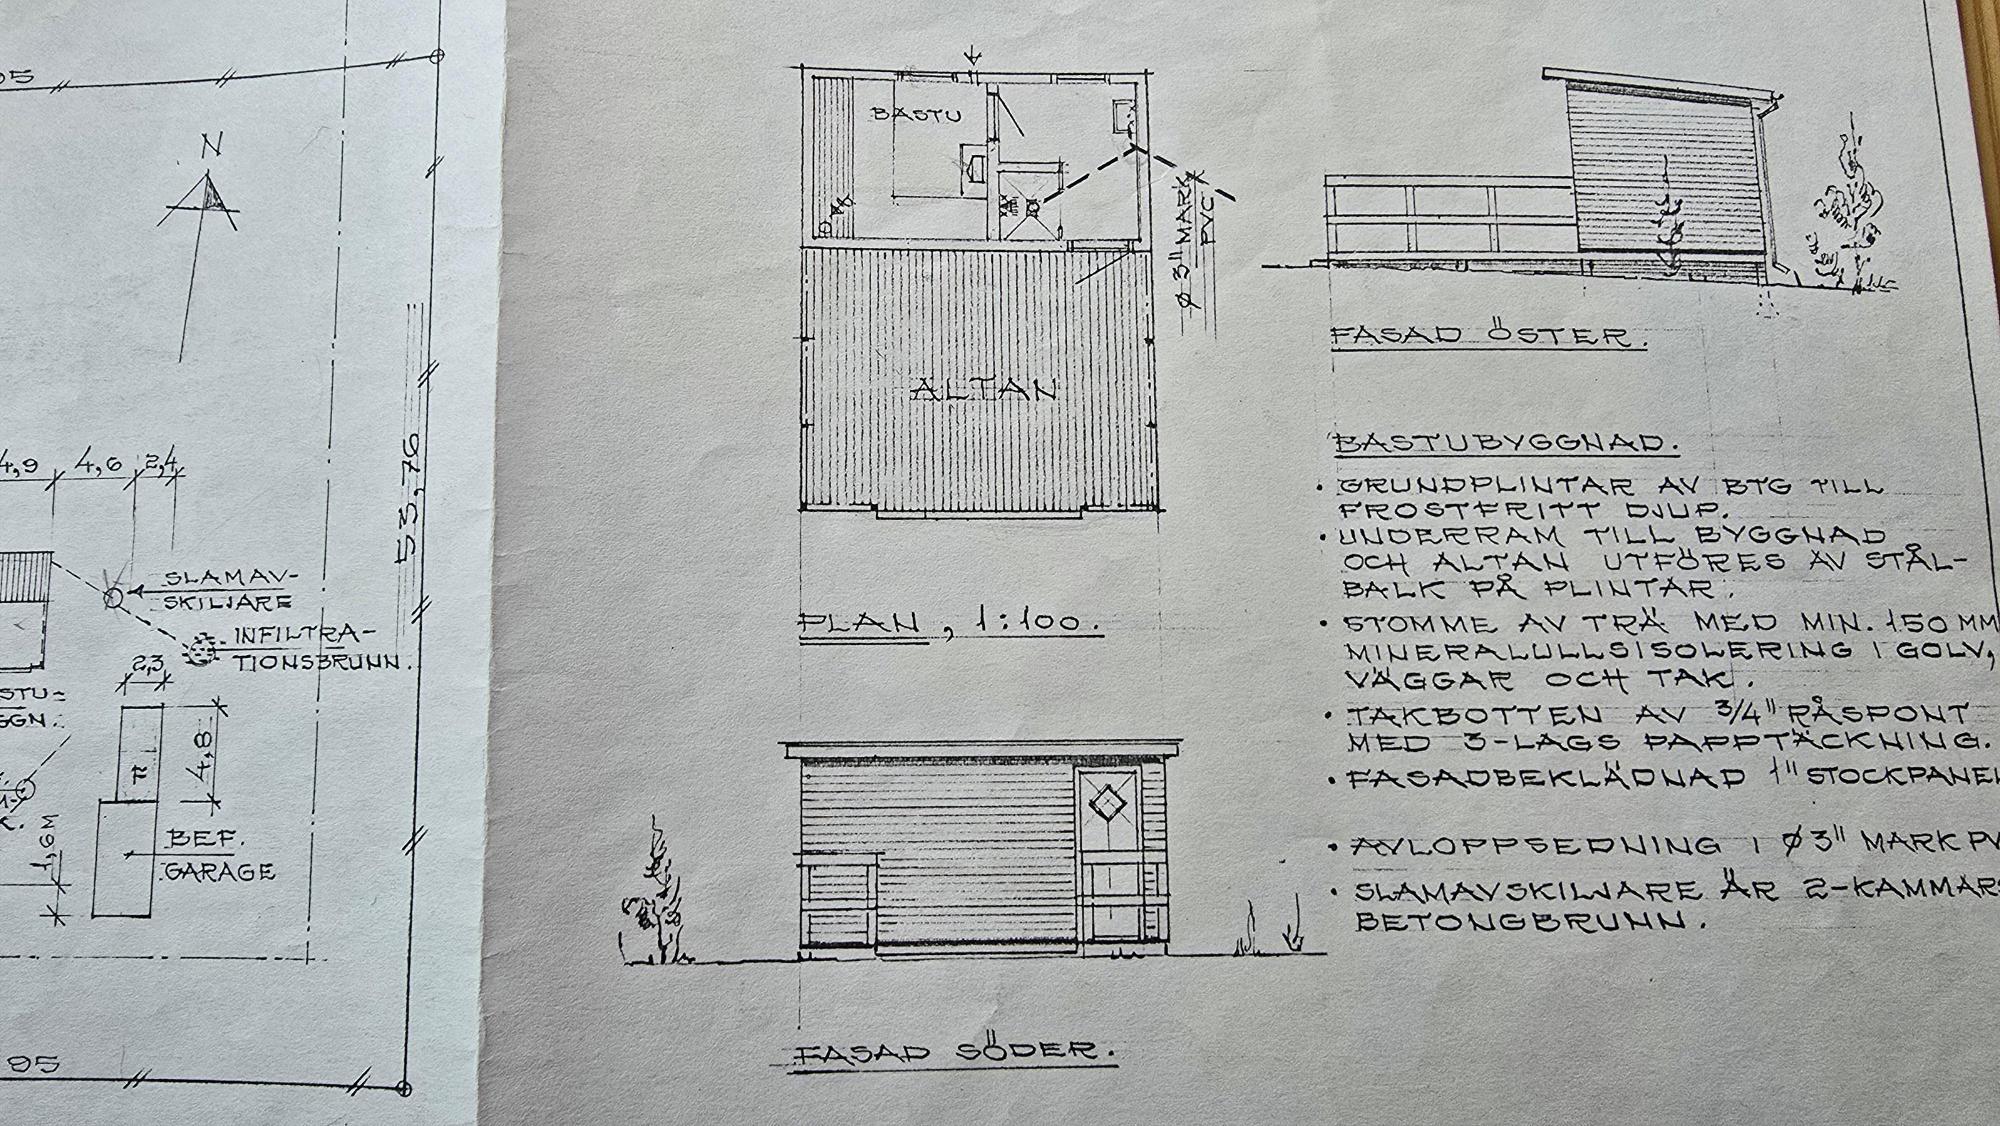 N
4,9
4,6
2,4
53,76
SLAMAV-
SKILJARE
INFILTRA-
TIONSBRUNN.
2,3
4,8
1,6M
BEF.
GARAGE
95
BASTU
Ø 3" MARK
PVC
ALTAN
PLAN, 1:100.
FASAD SÖDER.
FASAD ÖSTER.
BASTUBYGGNAD.
• GRUNDPLINTAR AV BTG TILL
FROSTFRITT DJUP.
• UNDERRAM TILL BYGGNAD
OCH ALTAN UTFÖRES AV STÅL-
BALK PÅ PLINTAR.
• STOMME AV TRÄ MED MIN. 150 MM
MINERALULLSISOLERING I GOLV,
VÄGGAR OCH TAK.
• TAKBOTTEN AV 3/4" RÅSPONT
MED 3-LAGS PAPPTÄCKNING.
• FASADBEKLÄDNAD 1" STOCKPANEL
• AVLOPPSEDNING I Ø 3" MARK PV
• SLAMAVSKILJARE ÄR 2-KAMMARS
BETONGBRUNN.